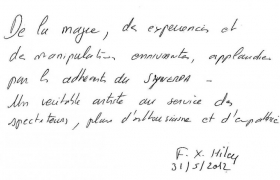 De la magie, des expériences et
des manipulations enivrantes, applaudies
par les adhérents du SYNERPA -
Un véritable artiste au service des
spectateurs, plein d'altruisme et d'empathie
F. X. Hiley
31/5/2012